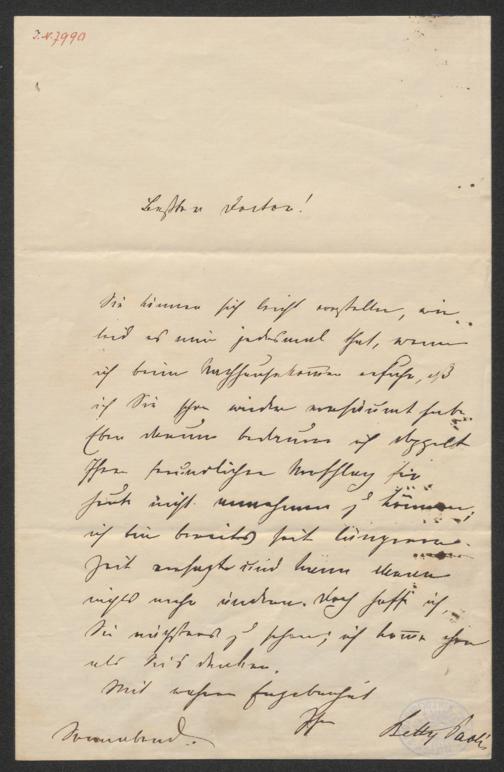 J.N. 7990
Bester Doctor!
Sie können sich leicht vorstellen, wie
leid es mir jedesmal thut, wenn
ich beim Nachhausekommen erfahre, daß
ich Sie schon wieder versäumt habe.
Eben darum bedaure ich doppelt
Ihren freundlichen Vorschlag für
heute nicht annehmen zu können;
ich bin bereits seit längerer
Zeit versagt und kann daran
nichts mehr ändern. Doch hoffe ich,
Sie nächstens zu sehen; ich komme eher
als Sie's denken.
Mit wahrer Ergebenheit
Ihre
Betty Paoli
Sonnabend.